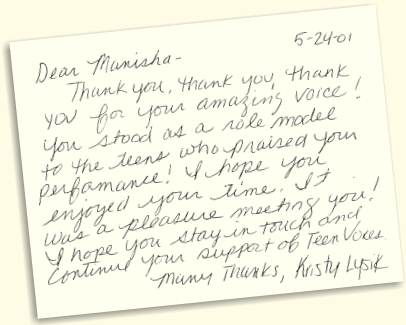 5-24-01
Dear Manisha-
Thank you, thank you, thank
you for your amazing voice!
You stood as a role model
to the teens who praised your
performance! I hope you
enjoyed your time. It
was a pleasure meeting you!
I hope you stay in touch and
continue your support of Teen Voices
Many Thanks, Kristy Lysik